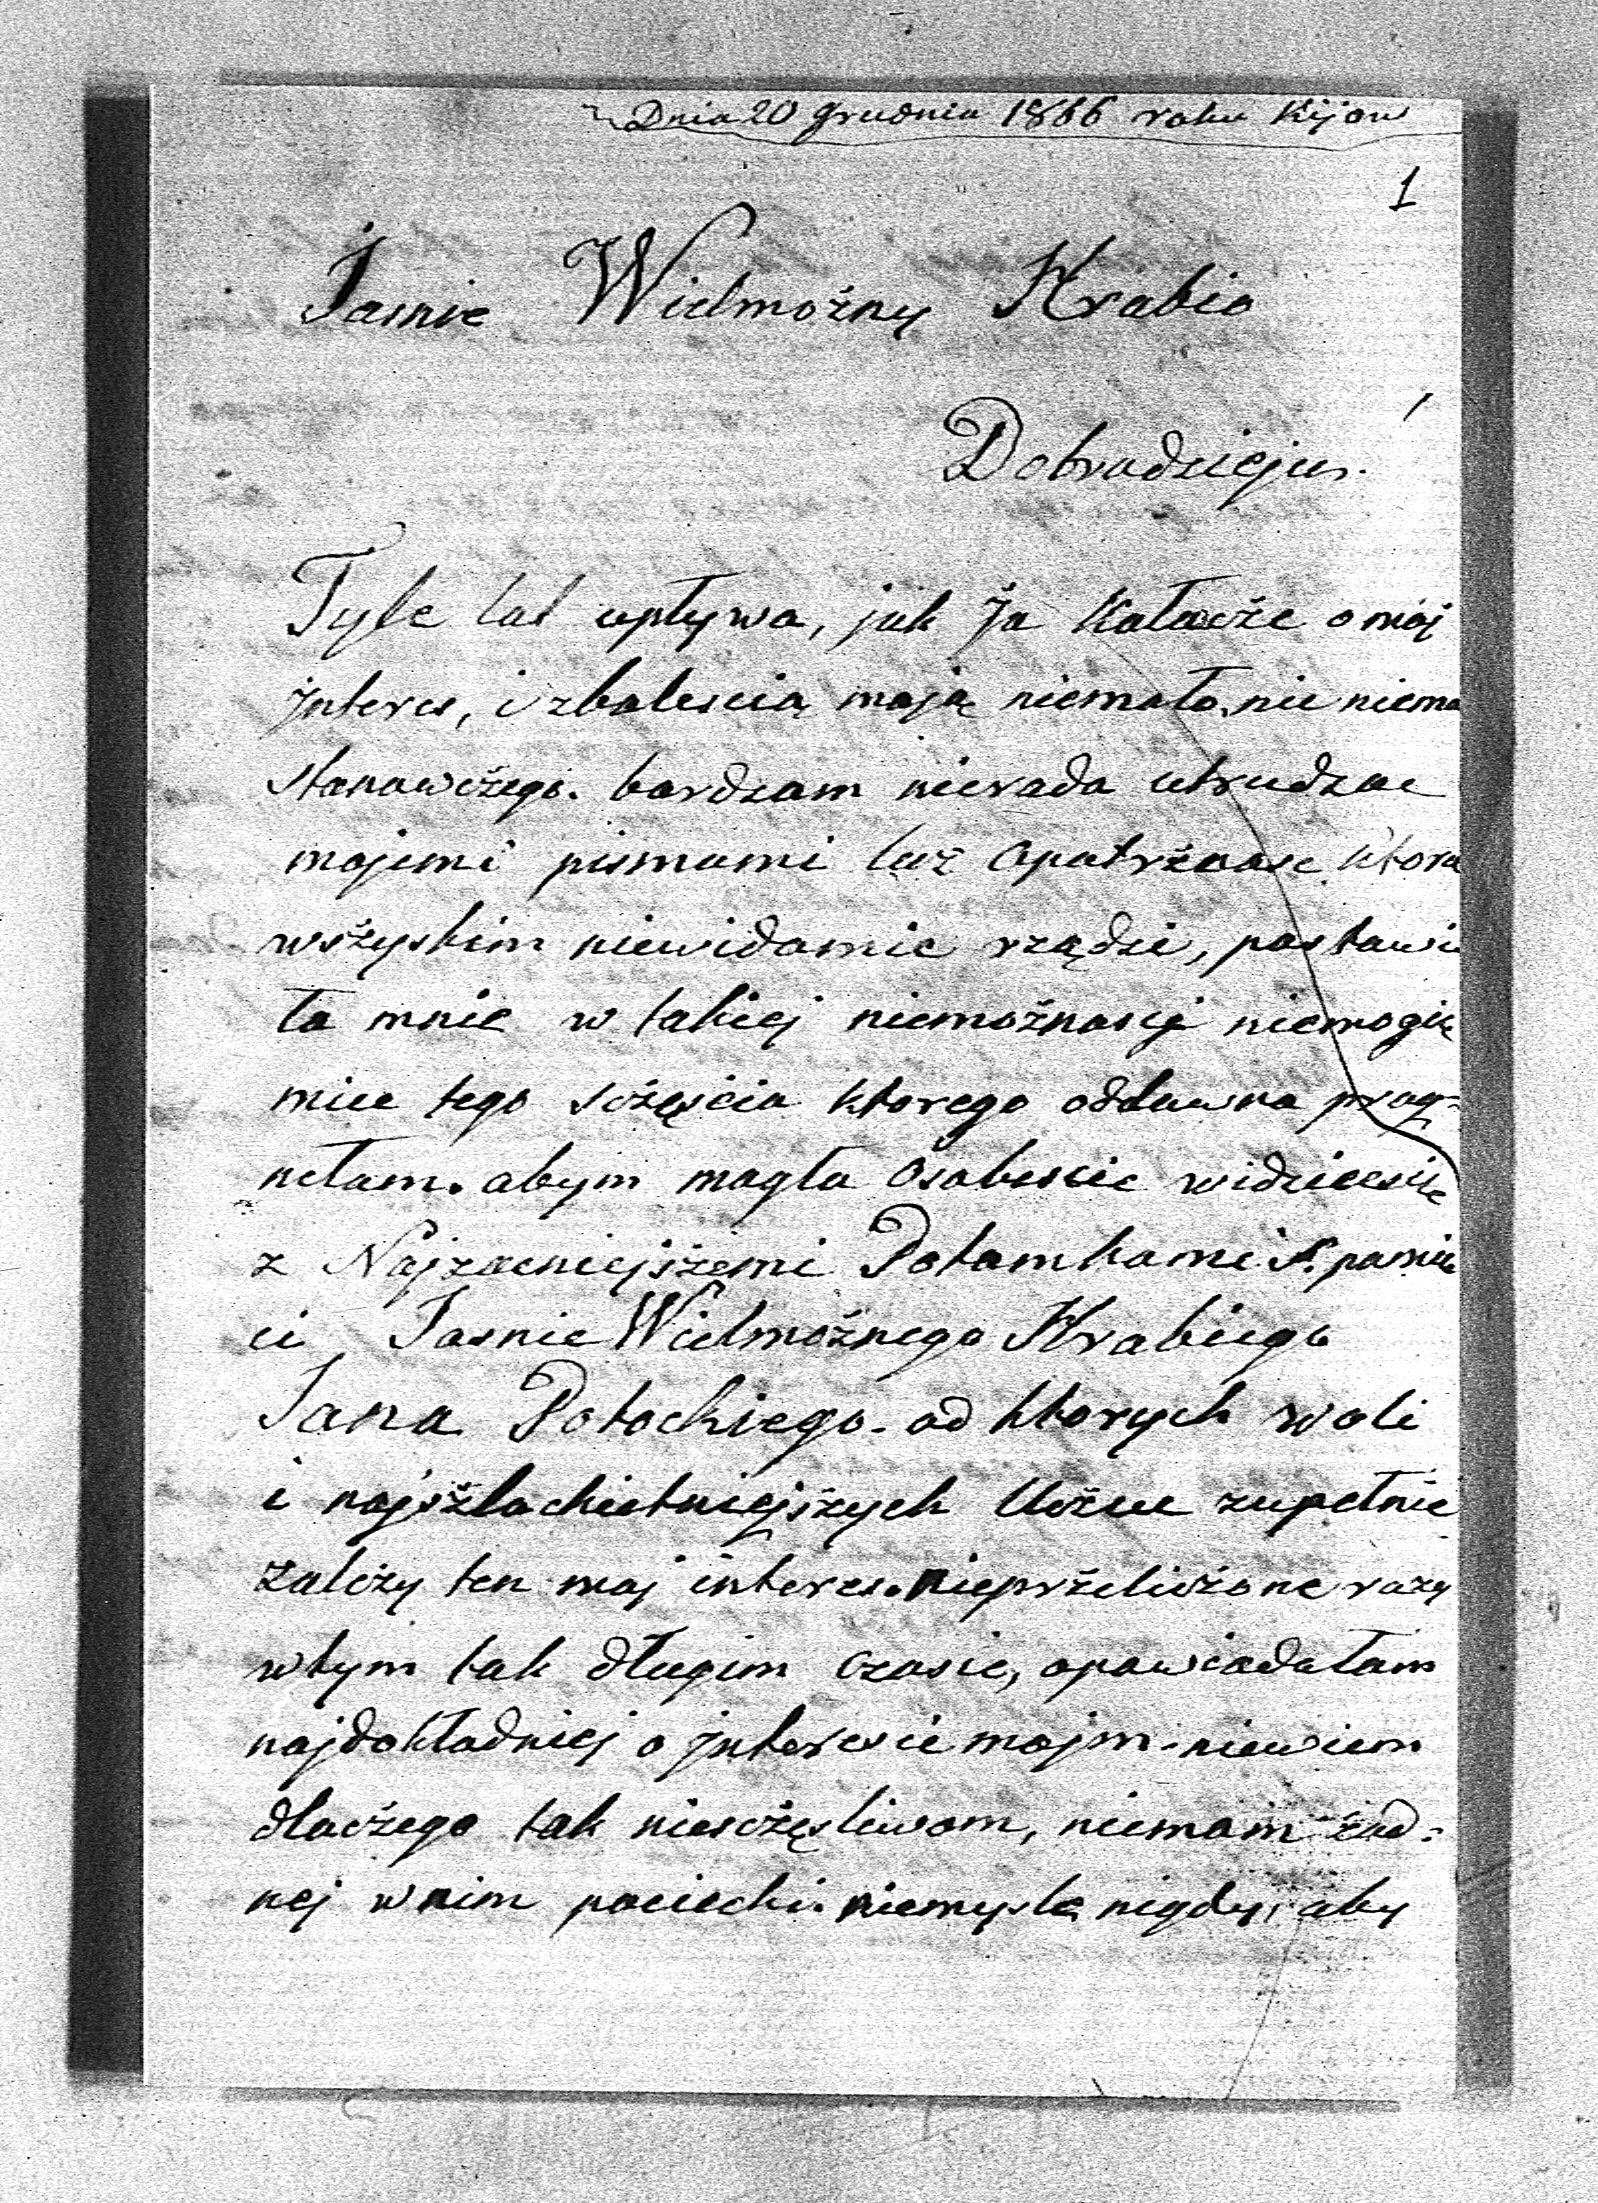 Dnia 20 Grudnia 1866 roku Kijow
1
Jasnie Wielmożny Hrabio
Dobrodzieju.
Tyle lat upływa, jak Ja Kołacże o moj
Jnteres, i zbolescią moją niemało, nic niema
stanowcżego. bardzom nierada utrudzac
mojemi pismami lecz Opatrżnosc ktora
wsżyskim niewidomie rządzi, postawi
ła mnie w takiej niemożnosci niemogię
miec tego scżęscia ktorego oddawna prag-
nełam. abym mogła Osobiscie widziecsię
z Najzacniejsżemi Potomkami S. pamię
ci Jasnie Wielmożnego Hrabiego
Jana Potockiego. od ktorych woli
i najsżlachietniejsżych Ucżuc zupełnie
zależy ten moj interes. nieprżelicżone razy
wtym tak długim czasie, opowiadałam
najdokładniej o Jnteresie mojm. niewiem
dlacżego tak niescżęsliwam, niemam żad-
nej wnim pociechi. niemysle nigdy, aby